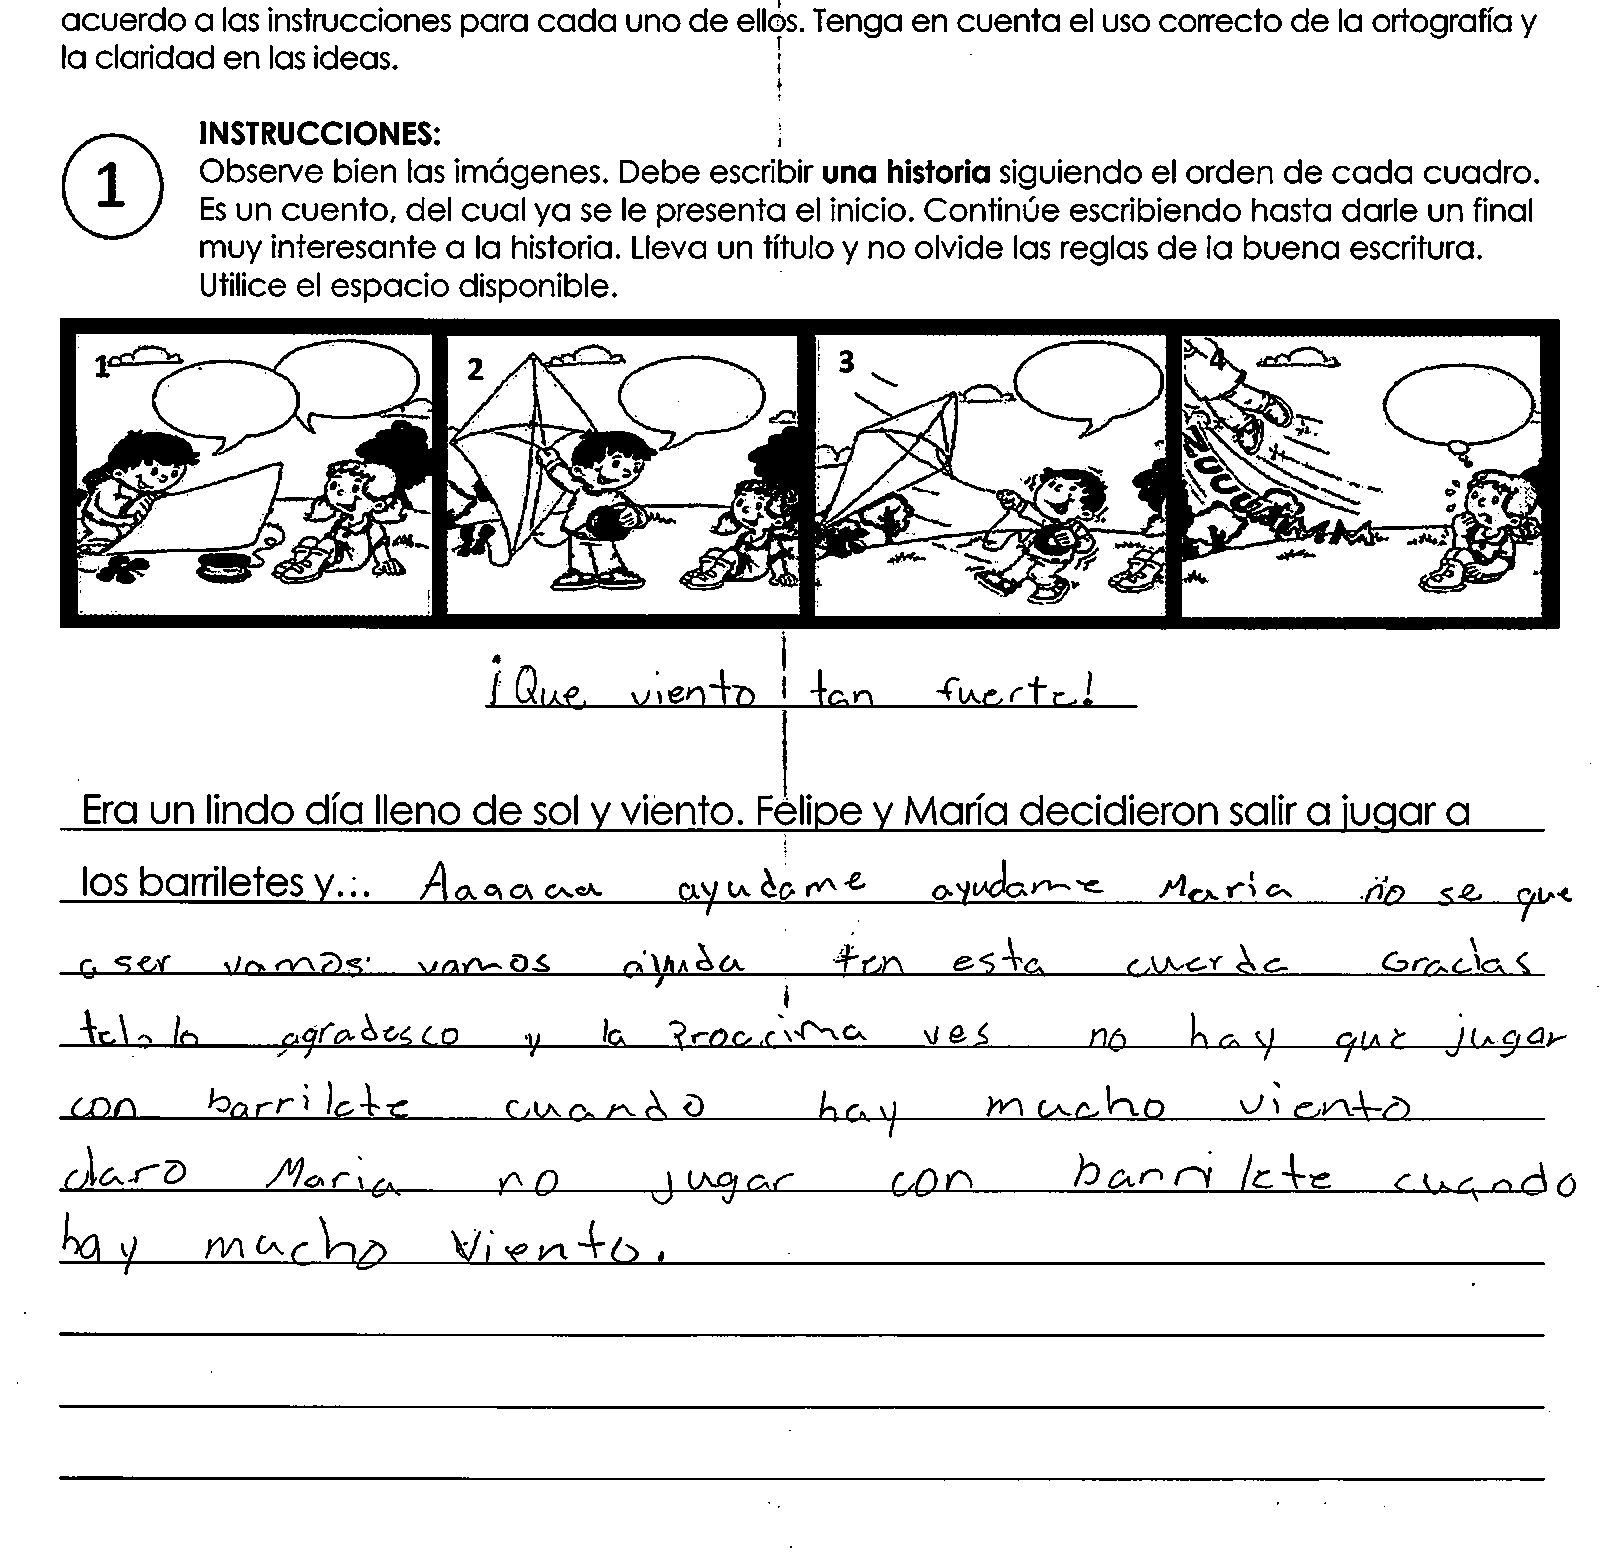 acuerdo a las instrucciones para cada uno de ellos. Tenga en cuenta el uso correcto de la ortografía y
la claridad en las ideas.
1
INSTRUCCIONES:
Observe bien las imágenes. Debe escribir una historia siguiendo el orden de cada cuadro.
Es un cuento, del cual ya se le presenta el inicio. Continúe escribiendo hasta darle un final
muy interesante a la historia. Lleva un título y no olvide las reglas de la buena escritura.
Utilice el espacio disponible.
1 2 3 4
¡Que viento tan fuerte!
Era un lindo día lleno de sol y viento. Felipe y María decidieron salir a jugar a
los barriletes y... Aaaaaa ayudame ayudame Maria no se que
a ser vamos vamos ayuda ten esta cuerda Gracias
telo lo agradesco y la Proccima ves no hay que jugar
con barrilete cuando hay mucho viento
claro Maria no jugar con barrilete cuando
hay mucho viento.